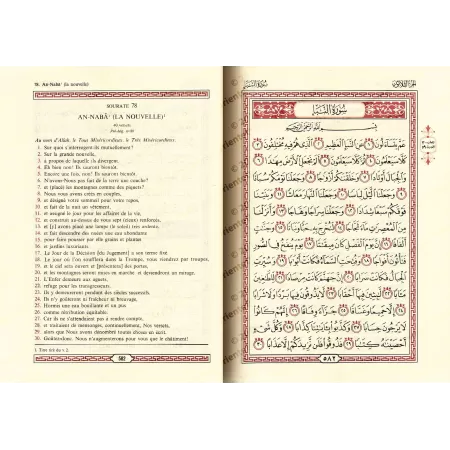 78. An-Naba' (la nouvelle)
SOURATE 78
AN-NABA' (LA NOUVELLE)¹
40 versets
Pré-hég. n°80
Au nom d'Allah, le Tout Miséricordieux, le Très Miséricordieux.
1. Sur quoi s'interrogent-ils mutuellement?
2. Sur la grande nouvelle,
3. à propos de laquelle ils divergent.
4. Eh bien non! Ils sauront bientôt.
5. Encore une fois, non! Ils sauront bientôt.
6. N'avons-Nous pas fait de la terre une couche?
7. et (placé) les montagnes comme des piquets?
8. Nous vous avons créés en couples,
9. et désigné votre sommeil pour votre repos,
10. et fait de la nuit un vêtement,
11. et assigné le jour pour les affaires de la vie,
12. et construit au-dessus de vous sept (cieux) renforcés,
13. et [y] avons placé une lampe (le soleil) très ardente,
14. et fait descendre des nuées une eau abondante
15. pour faire pousser par elle grains et plantes
16. et jardins luxuriants.
17. Le Jour de la Décision [du Jugement] a son terme fixé.
18. Le jour où l'on soufflera dans la Trompe, vous viendrez par troupes,
19. et le ciel sera ouvert et [présentera] des portes,
20. et les montagnes seront mises en marche et deviendront un mirage.
21. L'Enfer demeure aux aguets,
22. refuge pour les transgresseurs.
23. Ils y demeureront pendant des siècles successifs.
24. Ils n'y goûteront ni fraîcheur ni breuvage,
25. Hormis une eau bouillante et un pus
26. comme rétribution équitable.
27. Car ils ne s'attendaient pas à rendre compte,
28. et traitaient de mensonges, continuellement, Nos versets,
29. alors que Nous avons dénombré toutes choses en écrit.
30. Goûtez-donc. Nous n'augmenterons pour vous que le châtiment!
1. Titre tiré du v. 2.
582
سورة النبإ
الجزء الثلاثون
سورة النبإ
بسم الله الرحمن الرحيم
عم يتساءلون ١ عن النبإ العظيم ٢ الذي هم فيه مختلفون ٣
كلا سيعلمون ٤ ثم كلا سيعلمون ٥ ألم نجعل الأرض مهدا ٦
والجبال أوتادا ٧ وخلقنكم أزوجا ٨ وجعلنا نومكم سباتا ٩
وجعلنا اليل لباسا ١٠ وجعلنا النهار معاشا ١١ وبنينا
فوقكم سبعا شدادا ١٢ وجعلنا سراجا وهاجا ١٣ وأنزلنا
من المعصرت ماء ثجاجا ١٤ لنخرج به حبا ونباتا ١٥
وجنت ألفافا ١٦ إن يوم الفصل كان ميقتا ١٧ يوم ينفخ
في الصور فتأتون أفواجا ١٨ وفتحت السماء فكانت أبوبا ١٩
وسيرت الجبال فكانت سرابا ٢٠ إن جهنم كانت مرصادا ٢١
للطغين مئابا ٢٢ لبثين فيها أحقابا ٢٣ لا يذوقون فيها بردا ولا شرابا
٢٤ إلا حميما وغساقا ٢٥ جزاء وفاقا ٢٦ إنهم كانوا
لا يرجون حسابا ٢٧ وكذبوا بئايتنا كذابا ٢٨ وكل شيء
أحصينه كتبا ٢٩ فذوقوا فلن نزيدكم إلا عذابا ٣٠
٥٨٢